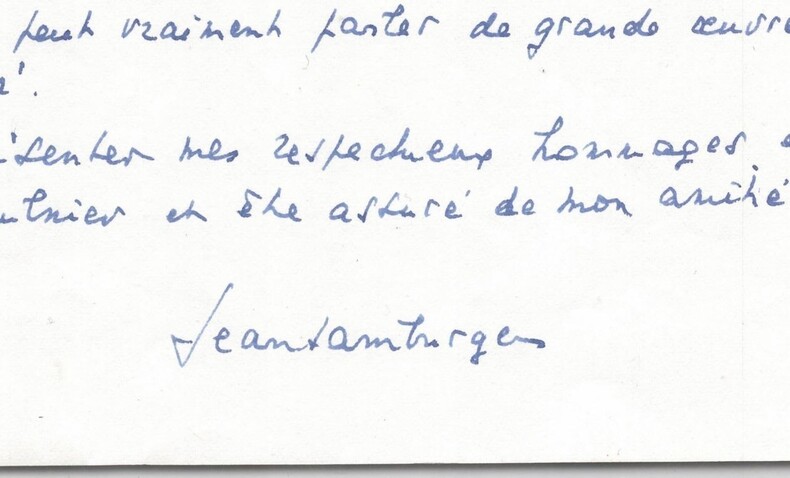 peut vraiment parler de grande œuvre
mes respectueux hommages
et être assuré de mon amitié
Jean Hamburger